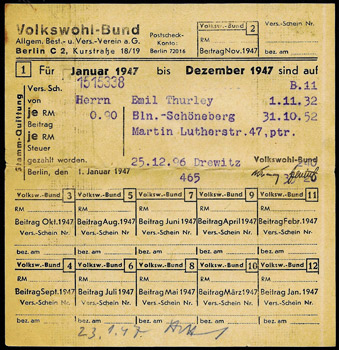 Volkswohl-Bund
Allgem. Best.- u. Vers.-Verein a. G.
Berlin C 2, Kurstraße 18/19
Postscheck-
Konto:
Berlin 72016
Volksw.-Bund 2
RM
Beitrag Nov. 1947
Vers.-Schein Nr.
bez. am
1 Für Januar 1947 bis Dezember 1947 sind auf
Stamm-Quittung
Vers. Sch. 1515338 B.11
von Herrn Emil Thurley 1.11.32
je RM 0.90 Bln.-Schöneberg 31.10.52
Beitrag Martin Lutherstr.47,ptr.
je RM
Steuer
gezahlt worden. 25.12.96 Drewitz Volkswohl-Bund
Berlin, den 1. Januar 1947 465
Volksw.-Bund 3 Volksw.-Bund 5 Volksw.-Bund 7 Volksw.-Bund 9 Volksw.-Bund 11
RM RM RM RM RM
Beitrag Okt. 1947 Beitrag Aug. 1947 Beitrag Juni 1947 Beitrag April 1947 Beitrag Febr. 1947
Vers.-Schein Nr. Vers.-Schein Nr. Vers.-Schein Nr. Vers.-Schein Nr. Vers.-Schein Nr.
bez. am bez. am bez. am bez. am bez. am
Volksw.-Bund 4 Volksw.-Bund 6 Volksw.-Bund 8 Volksw.-Bund 10 Volksw.-Bund 12
RM RM RM RM RM
Beitrag Sept. 1947 Beitrag Juli 1947 Beitrag Mai 1947 Beitrag März 1947 Beitrag Jan. 1947
Vers.-Schein Nr. Vers.-Schein Nr. Vers.-Schein Nr. Vers.-Schein Nr. Vers.-Schein Nr.
bez. am bez. am bez. am bez. am bez. am
23.1.47